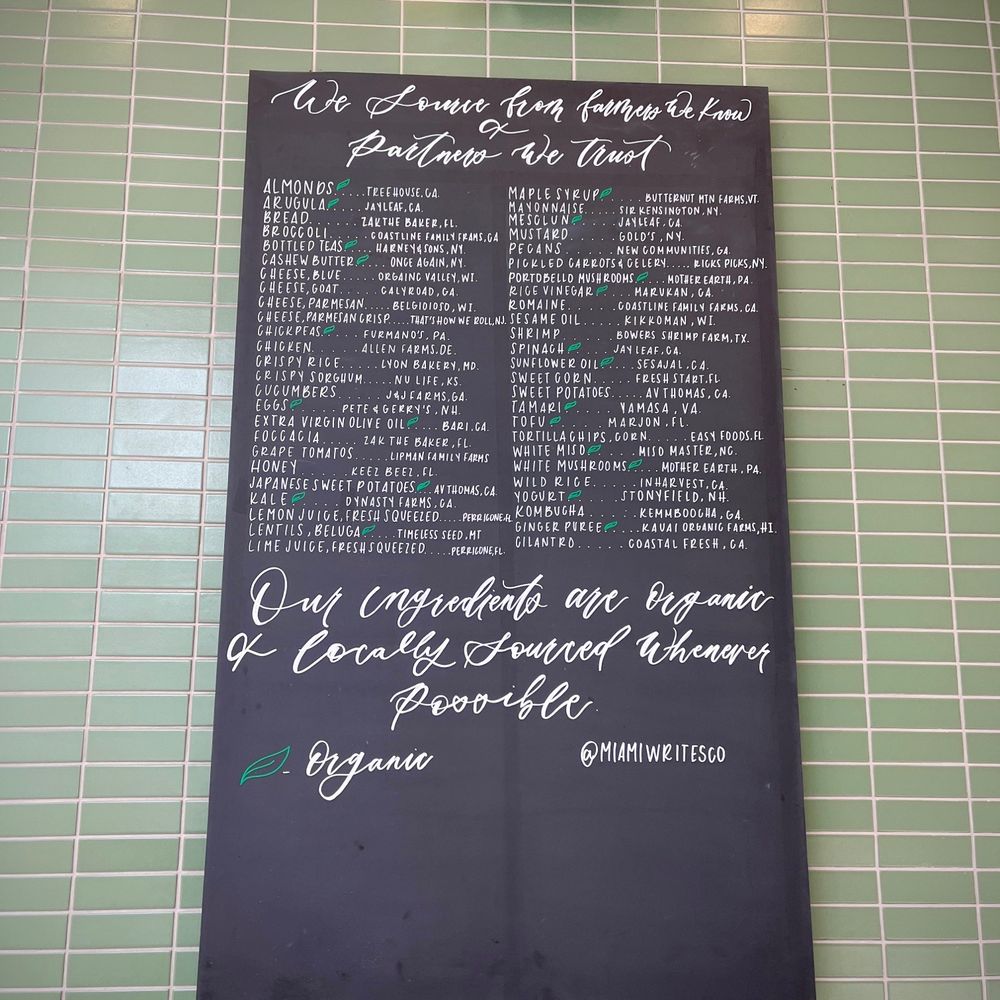 We Source from farmers We Know
&
Partners We trust
ALMONDS.....TREEHOUSE, CA.
ARUGULA..... JAYLEAF, CA.
BREAD......... ZAK THE BAKER, FL.
BROCCOLI....... COASTLINE FAMILY FRAMS, CA
BOTTLED TEAS..... HARNEY & SONS, NY.
CASHEW BUTTER...... ONCE AGAIN, NY.
CHEESE, BLUE...... ORGAINC VALLEY, WI.
CHEESE, GOAT....... CALYROAD, GA.
CHEESE, PARMESAN...... BELGIOIOSO, WI.
CHEESE, PARMESAN CRISP.....THAT'S HOW WE ROLL, NJ.
CHICKPEAS...... FURMANO'S, PA.
CHICKEN........ ALLEN FARMS. DE.
CRISPY RICE....... LYON BAKERY, MD.
CRISPY SORGHUM...... NU LIFE, KS.
CUCUMBERS....... J&J FARMS, GA.
EGGS....... PETE & GERRY'S, NH.
EXTRA VIRGIN OLIVE OIL...... BARI. CA.
FOCCACIA....... ZAK THE BAKER, FL.
GRAPE TOMATOS...... LIPMAN FAMILY FARMS
HONEY......... KEEZ BEEZ, FL.
JAPANESE SWEET POTATOES.... AV THOMAS, CA.
KALE...... DYNASTY FARMS, CA.
LEMON JUICE, FRESH SQUEEZED.....PERRICONE, FL
LENTILS, BELUGA...... TIMELESS SEED, MT
LIME JUICE, FRESH SQUEEZED.....PERRICONE, FL.
MAPLE SYRUP...... BUTTERNUT MTN FARMS, VT.
MAYONNAISE....... SIR KENSINGTON, NY.
MESCLUN....... JAYLEAF, CA.
MUSTARD....... GOLD'S, NY.
PECANS......... NEW COMMUNITIES, GA.
PICKLED CARROTS & CELERY..... RICKS PICKS, NY.
PORTOBELLO MUSHROOMS..... MOTHER EARTH, PA.
RICE VINEGAR...... MARUKAN, CA.
ROMAINE......... COASTLINE FAMILY FARMS, CA.
SESAME OIL...... KIKKOMAN, WI.
SHRIMP......... BOWERS SHRIMP FARM, TX.
SPINACH...... JAYLEAF, CA.
SUNFLOWER OIL...... SESAJAL, CA.
SWEET CORN....... FRESH START. FL
SWEET POTATOES...... AV THOMAS, CA.
TAMARI....... YAMASA, VA.
TOFU........ MARJON, FL.
TORTILLA CHIPS, CORN....... EASY FOODS. FL
WHITE MISO...... MISO MASTER, NC.
WHITE MUSHROOMS..... MOTHER EARTH, PA.
WILD RICE....... INHARVEST, CA.
YOGURT....... STONYFIELD, NH.
KOMBUCHA....... KEMMBOOCHA, GA.
GINGER PUREE...... KAUAI ORGANIC FARMS, HI.
CILANTRO....... COASTAL FRESH, CA.
Our ingredients are organic
& locally sourced Whenever
Possible.
- Organic
@MIAMIWRITESCO